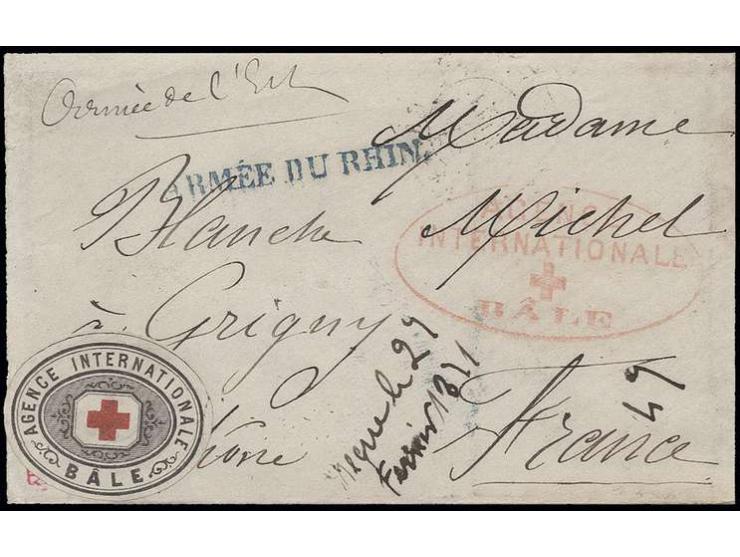 Armée de l'Est
ARMÉE DU RHIN.
Madame
Blanche Michel
AGENCE
INTERNATIONALE
BÂLE
à Grigny
Rhône
France
reçue le 29
Fevrier 1871
49
AGENCE INTERNATIONALE
BÂLE